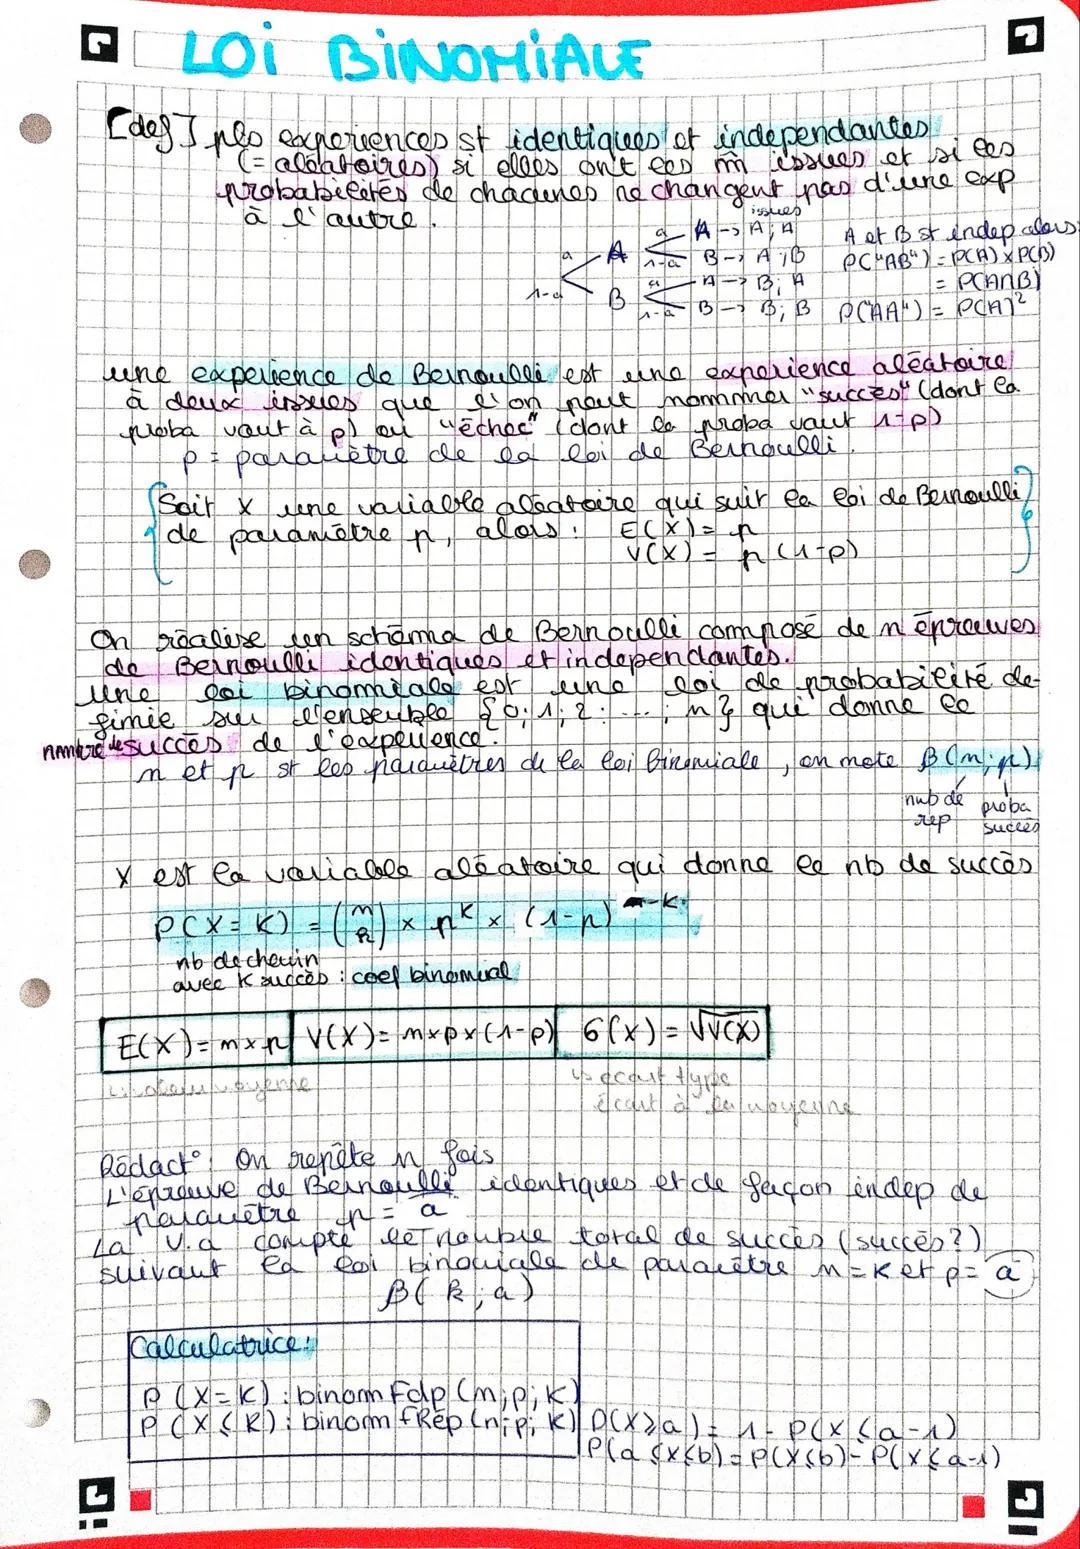 LOi BiNOMiALE
[def] pls experiences st identiques et independantes
(= aléatoires) si elles ont les m̂ issues et si les
probabilités de chacunes ne changent pas d'une exp
à l'autre.
issues
a A a A -> A ; A
1-a B -> A ; B
1-a B a A -> B ; A
1-a B -> B ; B
A et B st indep alors:
P("AB") = P(A) x P(B)
= P(A∩B)
P("AA") = P(A)²
une experience de Bernoulli est une experience aléatoire
à deux issues que l'on peut nommner "succès" (dont la
proba vaut à p) ou "échec" (dont la proba vaut 1-p)
p = paramètre de la loi de Bernoulli.
Soit X une variable aléatoire qui suit la loi de Bernoulli
de paramètre p, alors : E(X) = p
V(X) = p (1-p)
On réalise un schéma de Bernoulli composé de n épreuves
de Bernoulli identiques et independantes.
Une loi binomiale est une loi de probabilité dé-
finie sur l'ensemble {0; 1; 2; ...; n} qui donne le
nombre de succès de l'expérience.
n et p st les paramètres de la loi binomiale, on note B(n; p)
nub de rep
proba succès
X est la variable aléatoire qui donne le nb de succès
P(X = K) = (n k) x p^K x (1-p)^n-K
nb de chemin
avec K succès : coef binomial
E(X) = n x p V(X) = n x p x (1-p) σ(X) = √V(X)
moyenne
↳ écart type
écart à la moyenne
Rédact° : On repète n fois
L'épreuve de Bernoulli identiques et de façon indep de
paramètre p = a
La v.a compte le nombre total de succès (succès?)
suivant la loi binomiale de paramètre n = K et p = a
B(k ; a)
Calculatrice:
P(X = K) : binomFdp (n; p; K)
P(X ≤ K) : binomFRép (n; p; K) P(X ≥ a) = 1 - P(X ≤ a-1)
P(a ≤ X ≤ b) = P(X ≤ b) - P(X ≤ a-1)